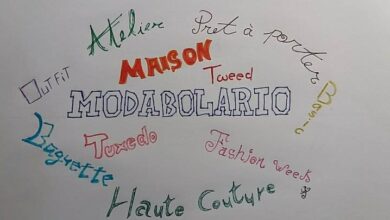 Atelier
Pret à porter
MAISON
Tweed
OutFiT
MODABOLARIO
Basic
Baguette
Tuxedo
Fashion week
&
Haute Couture